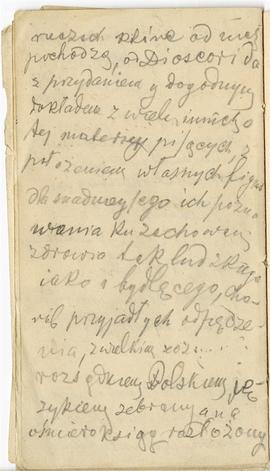 rzeczach które od nich
pochodzą, o Dioscorida
z przydaniem y dogodnym
dokładem z wielu innych o
tej materiey piszących, z
położeniem własnych figur
dla snadnieyszego ich pozna
wania ku zachowaniu
zdrowia tak ludzkiego
jako i bydlęcego, cho-
rób przyjadłych odpędze-
nia, z wielkim
rozsądkiem Polskiem ję-
zykiem zebrany a na
ośmioro ksiąg rozłożony